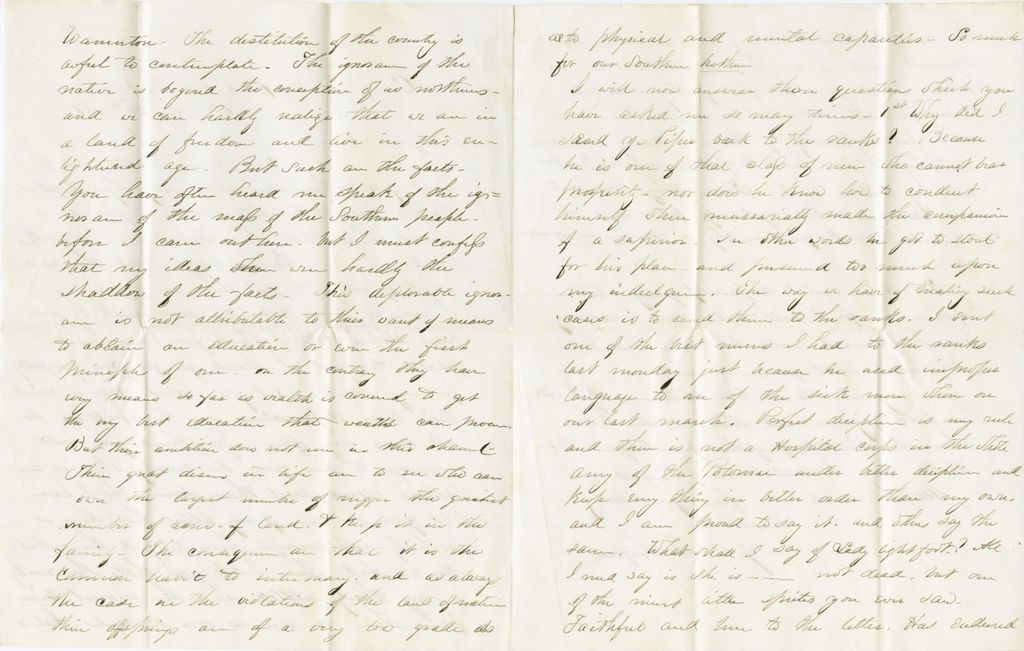 Warrenton - The destitution of the country is
awful to contemplate - The ignoranc of the
native is beyond the conception of us northerns -
and we can hardly realize that we are in
a land of freedom and live in this en-
lightened age. But such are the facts -
You have often heard me speak of the ig=
noranc of the mass of the Southern people -
before I came out here - but I must confess
that my ideas then were hardly the
shaddow of the facts - This deplorable ignor-
anc is not attributable to their want of means
to obtain an education or even the first
principle of one. on the contrary they have
every means so far as wealth is concerned to get
the very best education that wealth can procure.
But their ambition does not run in this channel -
Their great desire in life are to see who can
own the largest number of niggers the greatest
number of acres of land. & keep it in the
family - The consequenc are that it is the
common habit to intermarry. and as always
the case in the violation of the laws of nature
their offsprings are of a very low grade as
as to physical and mental capacities - So much
for our Southern
I will now answer those question which you
have asked me so many times - 1st Why did I
send Piper back to the ranks? Because
he is one of that class of men who cannot bear
prosperity - nor does he know how to conduct
himself when necessarially made the companion
of a superior - In other words he got to stout
for his place and presumed too much upon
my indulgence. The way we have of treating such
cases is to send them to the ranks. I sent
one of the best nurses I had to the ranks
last monday just because he used improper
language to one of the sick men when on
our last march. Perfect discipline is my rule
and there is not a Hospital corps in the whole
army of the Potomac under better discipline and
keep every thing in better order than my own.
and I am proud to say it. and others say the
same. What shall I say of Lady lightfoot? All
I need say is she is —— not dead, but one
of the nicest little spirits you ever saw.
Faithful and true to the letter. Has endured